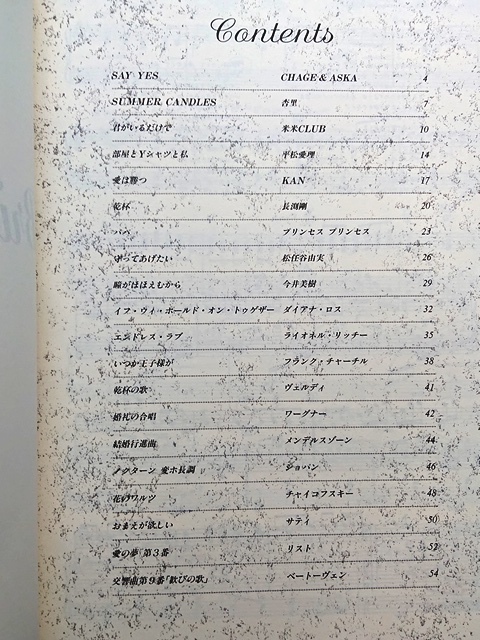 Contents
SAY YES CHAGE & ASKA 4
SUMMER CANDLES 杏里 7
君がいるだけで 米米CLUB 10
部屋とYシャツと私 平松愛理 14
愛は勝つ KAN 17
乾杯 長渕剛 20
パパ プリンセス プリンセス 23
守ってあげたい 松任谷由実 26
瞳がほほえむから 今井美樹 29
イフ・ウィ・ホールド・オン・トゥゲザー ダイアナ・ロス 32
エンドレス・ラブ ライオネル・リッチー 35
いつか王子様が フランク・チャーチル 38
乾杯の歌 ヴェルディ 41
婚礼の合唱 ワーグナー 42
結婚行進曲 メンデルスゾーン 44
ノクターン 変ホ長調 ショパン 46
花のワルツ チャイコフスキー 48
おまえが欲しい サティ 50
愛の夢 第3番 リスト 52
交響曲第9番「歓びの歌」 ベートーヴェン 54